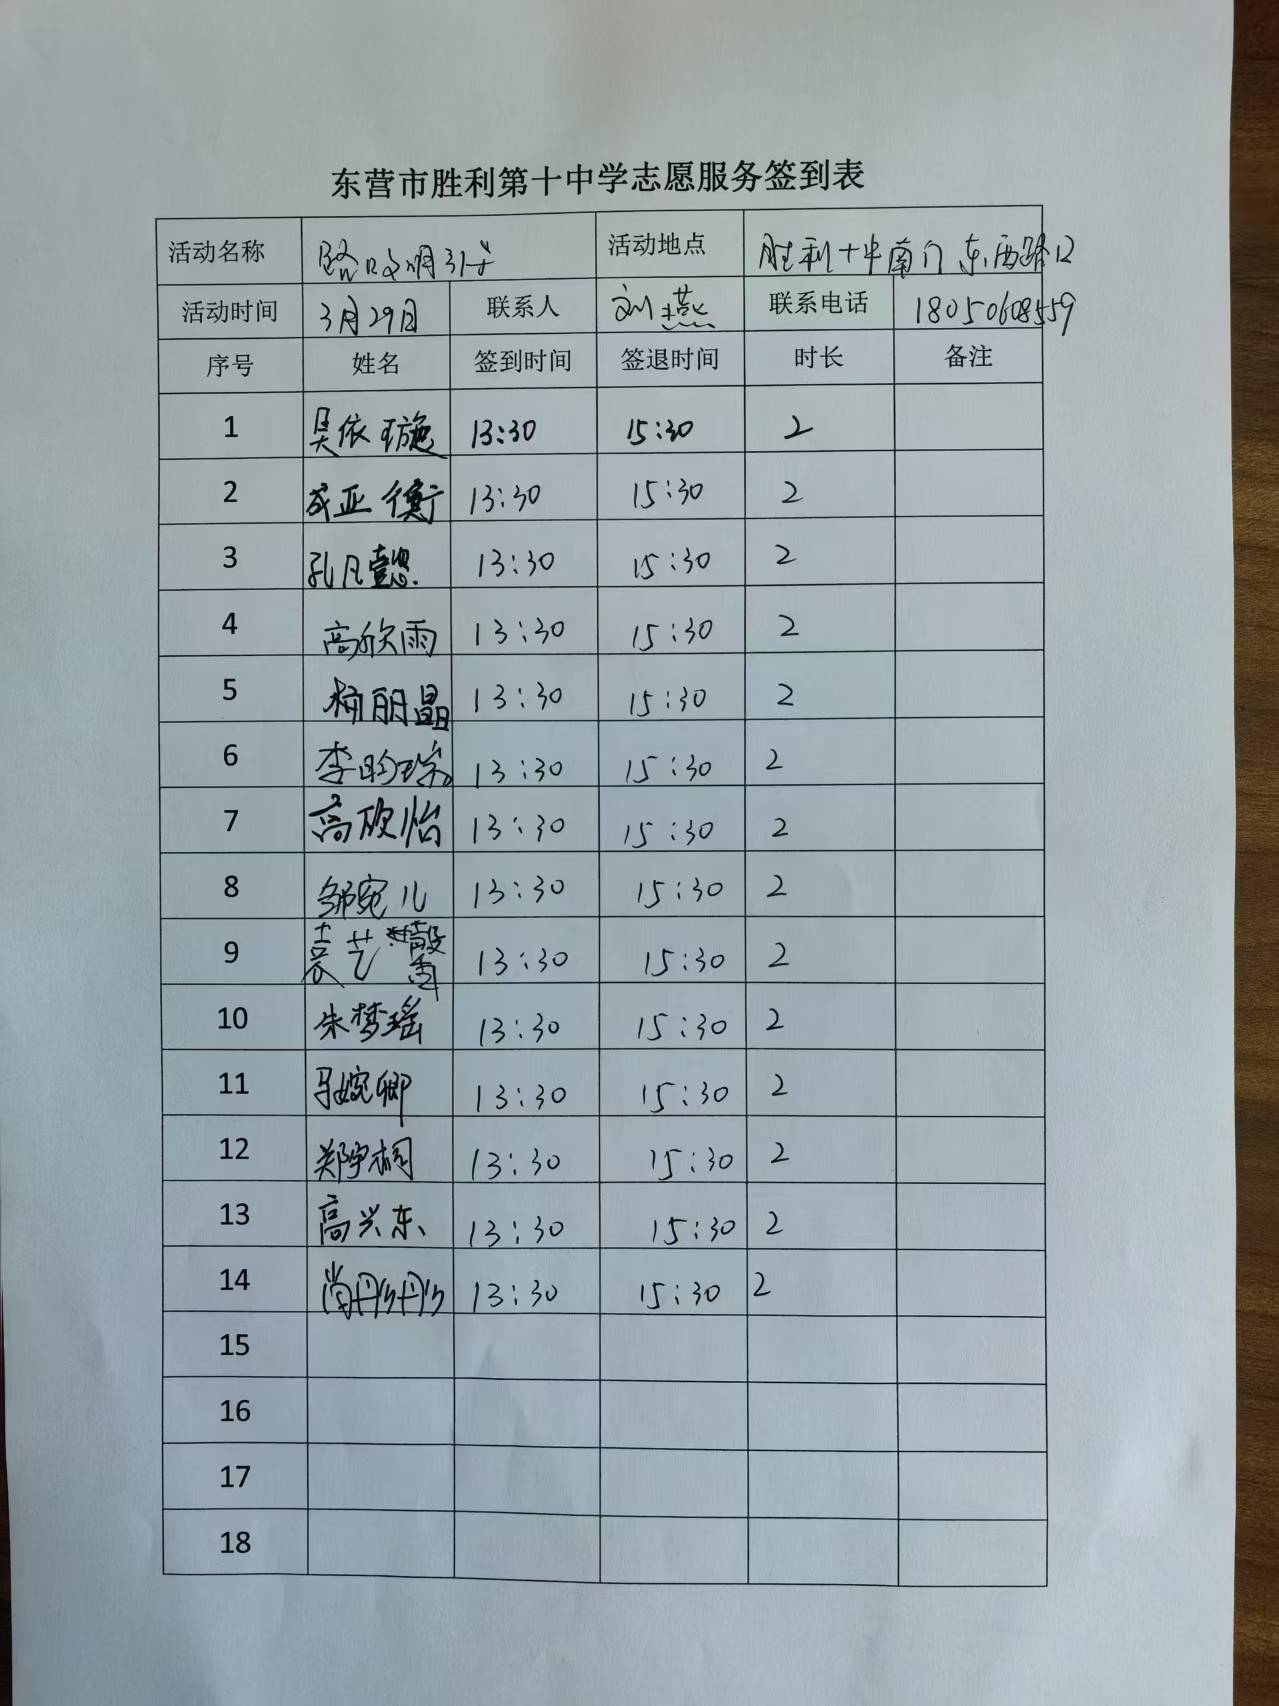 东营市胜利第十中学志愿服务签到表
活动名称 路口文明引导 活动地点 胜利十中南门东西路口
活动时间 3月29日 联系人 刘燕 联系电话 18050608559
序号 姓名 签到时间 签退时间 时长 备注
1 吴依璇 13:30 15:30 2
2 成亚衡 13:30 15:30 2
3 孔凡懿 13:30 15:30 2
4 高欣雨 13:30 15:30 2
5 杨丽晶 13:30 15:30 2
6 李昀 13:30 15:30 2
7 高欣怡 13:30 15:30 2
8 邹宛儿 13:30 15:30 2
9 袁艺馨 13:30 15:30 2
10 朱梦瑶 13:30 15:30 2
11 马婉卿 13:30 15:30 2
12 郑宇桐 13:30 15:30 2
13 高兴东 13:30 15:30 2
14 尚彤彤 13:30 15:30 2
15
16
17
18